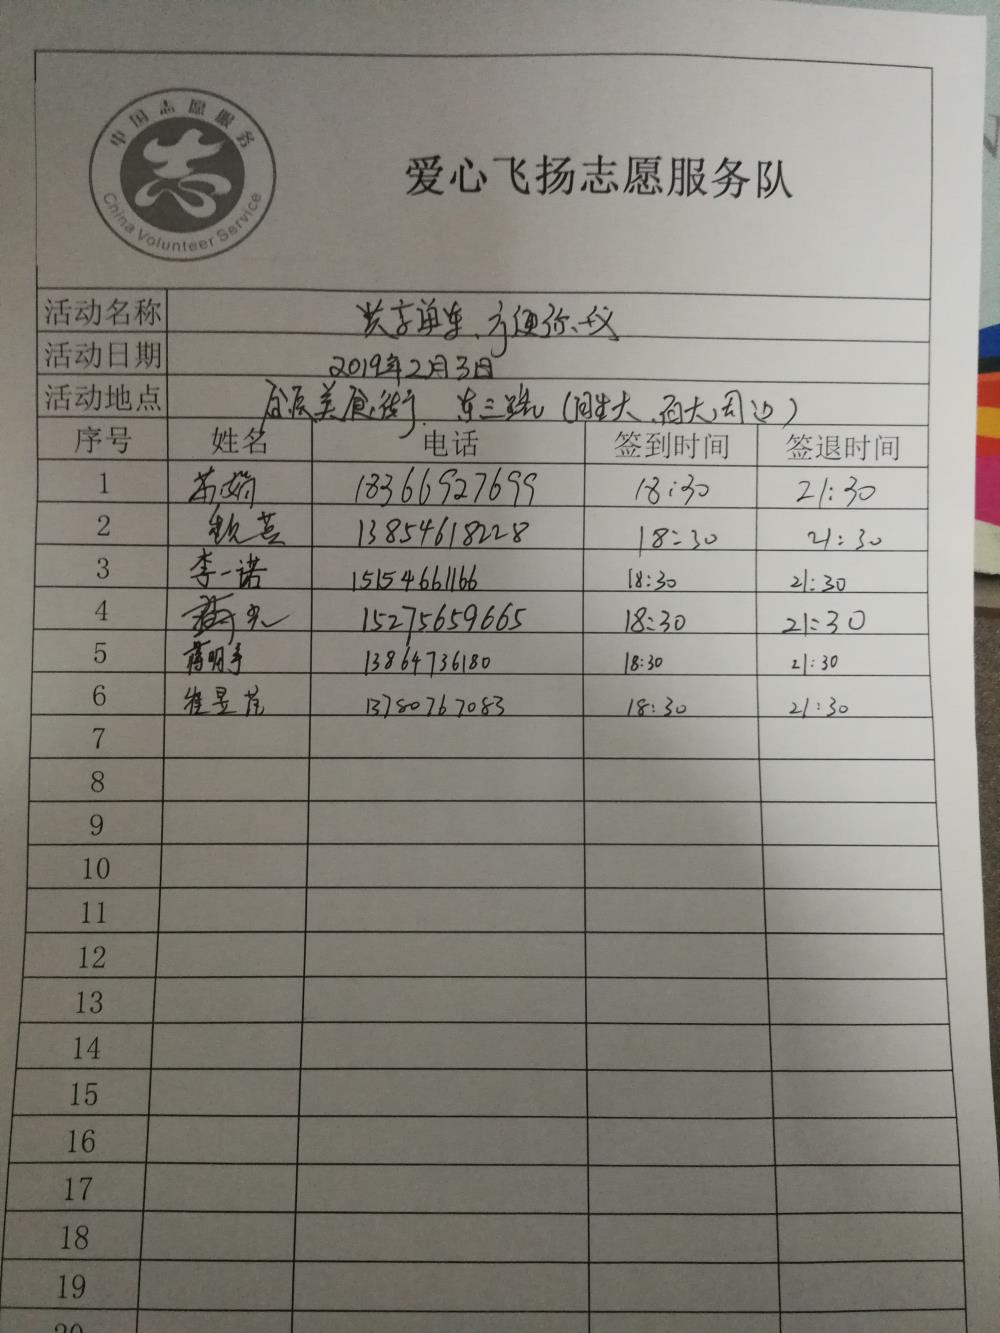 中国志愿服务
China Volunteer Service
爱心飞扬志愿服务队
活动名称 共享单车、方便你我
活动日期 2019年2月3日
活动地点 美食街 东三路 (周边)
序号 姓名 电话 签到时间 签退时间
1 18366927699 18:30 21:30
2 13854618228 18:30 21:30
3 李一诺 15154661166 18:30 21:30
4 15275659665 18:30 21:30
5 13864736180 18:30 21:30
6 崔昱 13780767083 18:30 21:30
7
8
9
10
11
12
13
14
15
16
17
18
19
20